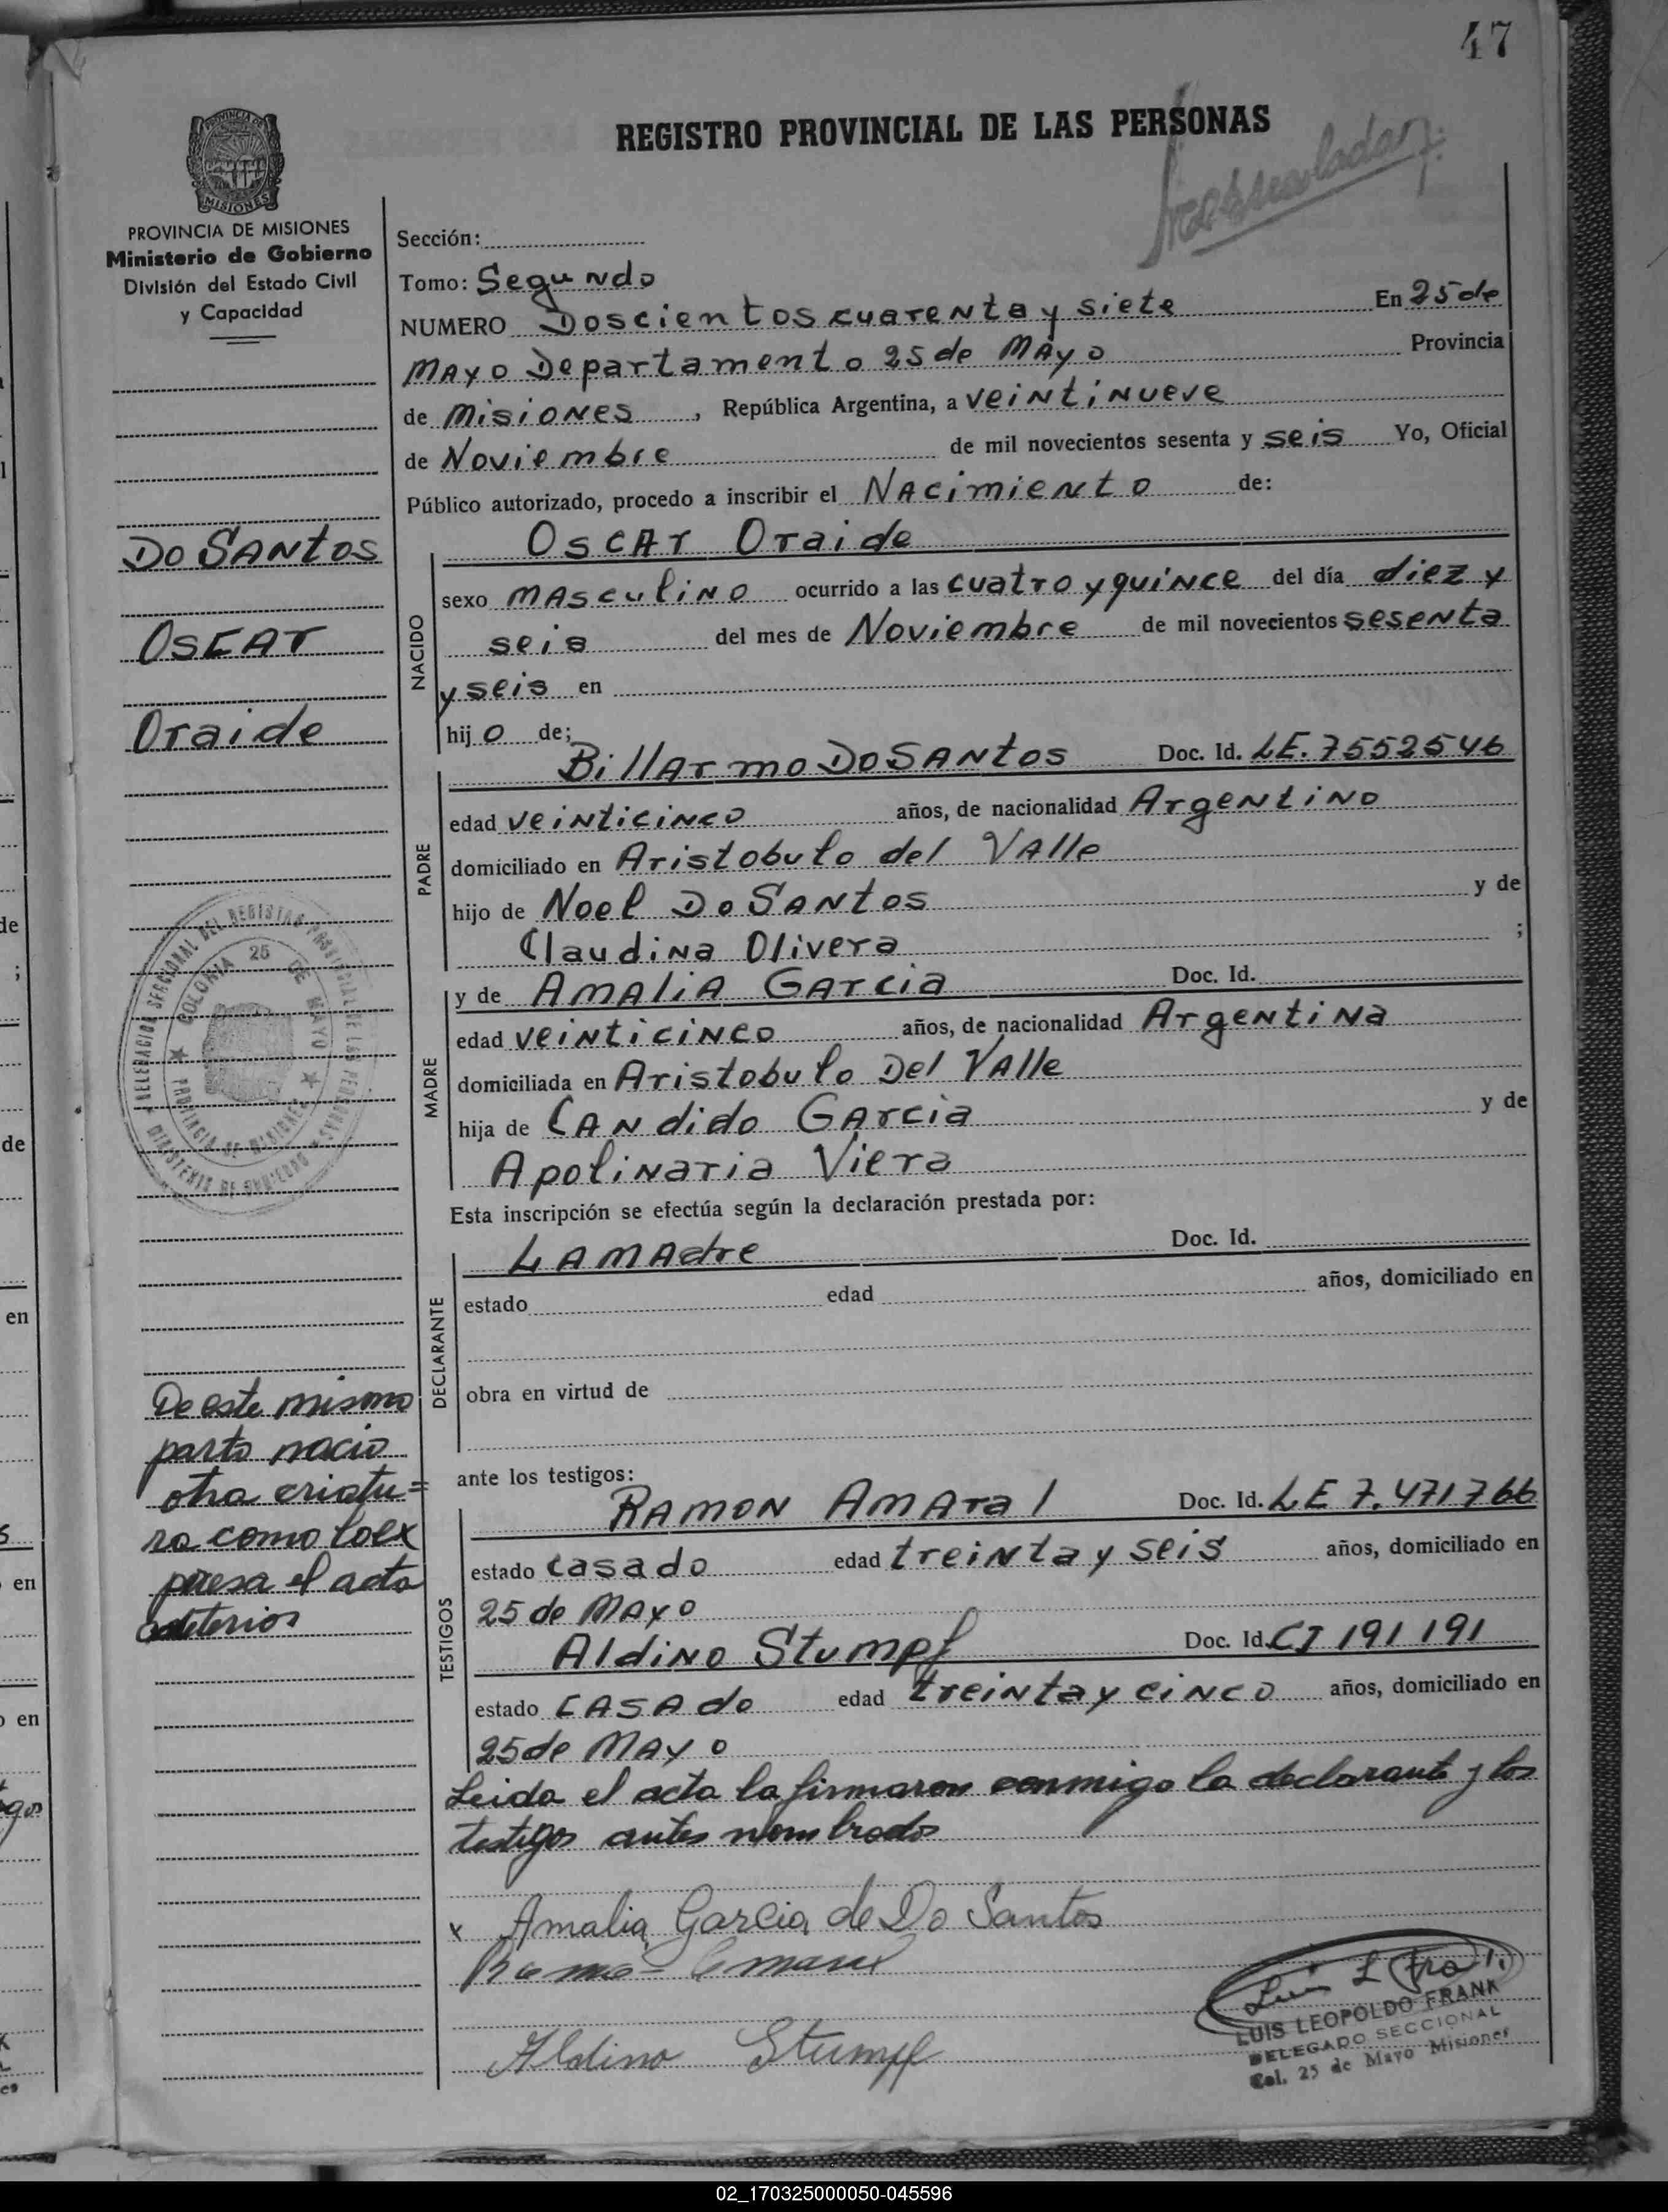 47
REGISTRO PROVINCIAL DE LAS PERSONAS
PROVINCIA DE
MISIONES
PROVINCIA DE MISIONES
Ministerio de Gobierno
División del Estado Civil
y Capacidad
DO SANtos
OSCAr
Oraide
DELEGACION SECCIONAL DEL REGISTRO PROVINCIAL DE LAS PERSONAS
MINISTERIO DE GOBIERNO
COLONIA 25 DE MAYO
PROVINCIA DE MISIONES
De este mismo
parto nacio
otra criatu=
ra como loex
presa el acta
Sección:
Tomo: Segundo
NUMERO Doscientos cuarenta y siete En 25 de
MAYO Departamento 25 de MAyo Provincia
de Misiones, República Argentina, a veintinueve
de Noviembre de mil novecientos sesenta y seis Yo, Oficial
Público autorizado, procedo a inscribir el NAcimiento de:
OSCAr Oraide
NACIDO
sexo MAsculino ocurrido a las cuatro y quince del día diez y
seis del mes de Noviembre de mil novecientos sesenta
y seis en
hijo de;
PADRE
BillArmo DO SANtos Doc. Id. LE. 7552546
edad veinticinco años, de nacionalidad Argentino
domiciliado en Aristobulo del VAlle
hijo de Noel Do SANtos y de
Claudina Olivera ;
MADRE
y de AmAliA GArcia Doc. Id.
edad veinticinco años, de nacionalidad Argentina
domiciliada en Aristobulo Del VAlle
hija de CANdido GArcia y de
Apolinaria Viera
Esta inscripción se efectúa según la declaración prestada por:
DECLARANTE
LA MAdre Doc. Id.
estado edad años, domiciliado en
obra en virtud de
ante los testigos:
TESTIGOS
RAMON AmAral Doc. Id. LE 7.471766
estado casado edad treinta y seis años, domiciliado en
25 de MAyo
Aldino Stumpf Doc. Id. CI 191 191
estado CASAdo edad treinta y cinco años, domiciliado en
25 de MAyo
Leida el acta la firmaron conmigo la declarante y los
testigos antes nombrados
x Amalia Garcia de Do Santos
Aldino Stumpf
LUIS LEOPOLDO FRANK
DELEGADO SECCIONAL
Col. 25 de Mayo Misiones
02_170325000050-045596